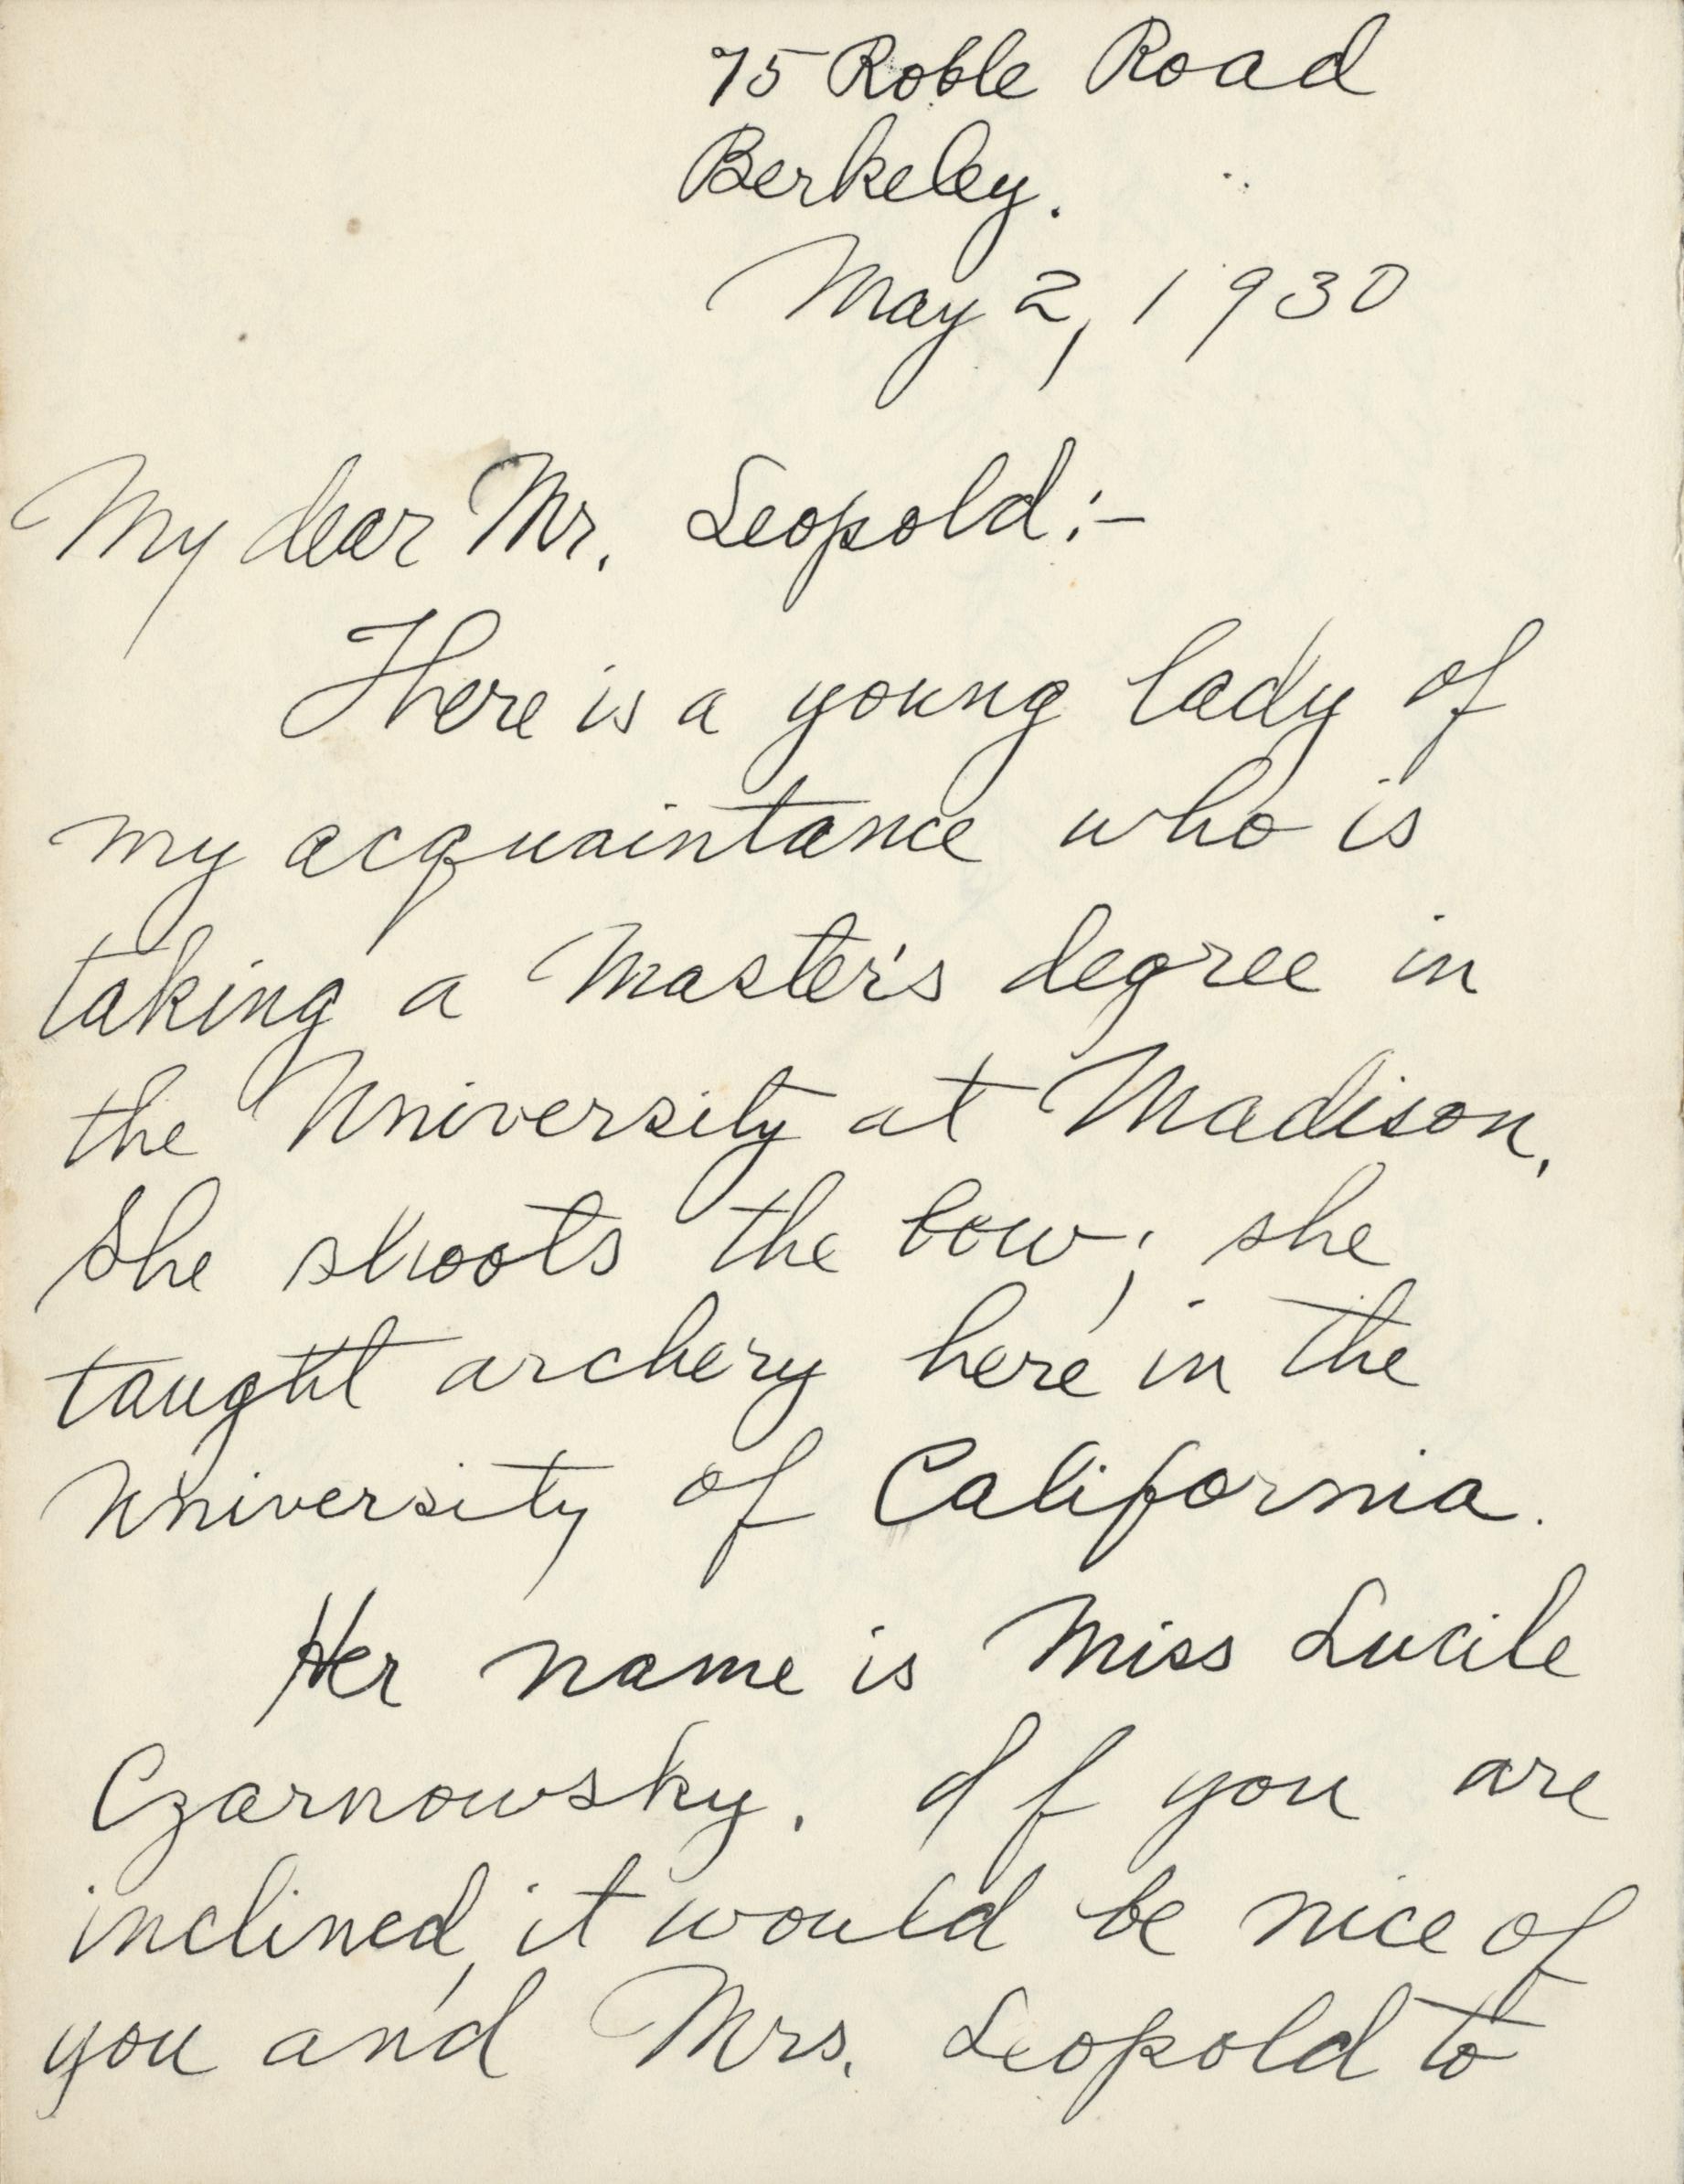 75 Roble Road
Berkeley.
May 2, 1930
My dear Mr. Leopold:-
There is a young lady of
my acquaintance who is
taking a Master's degree in
the University at Madison.
She shoots the bow; she
taught archery here in the
University of California.
Her name is Miss Lucile
Czarnowsky. If you are
inclined, it would be nice of
you and Mrs. Leopold to